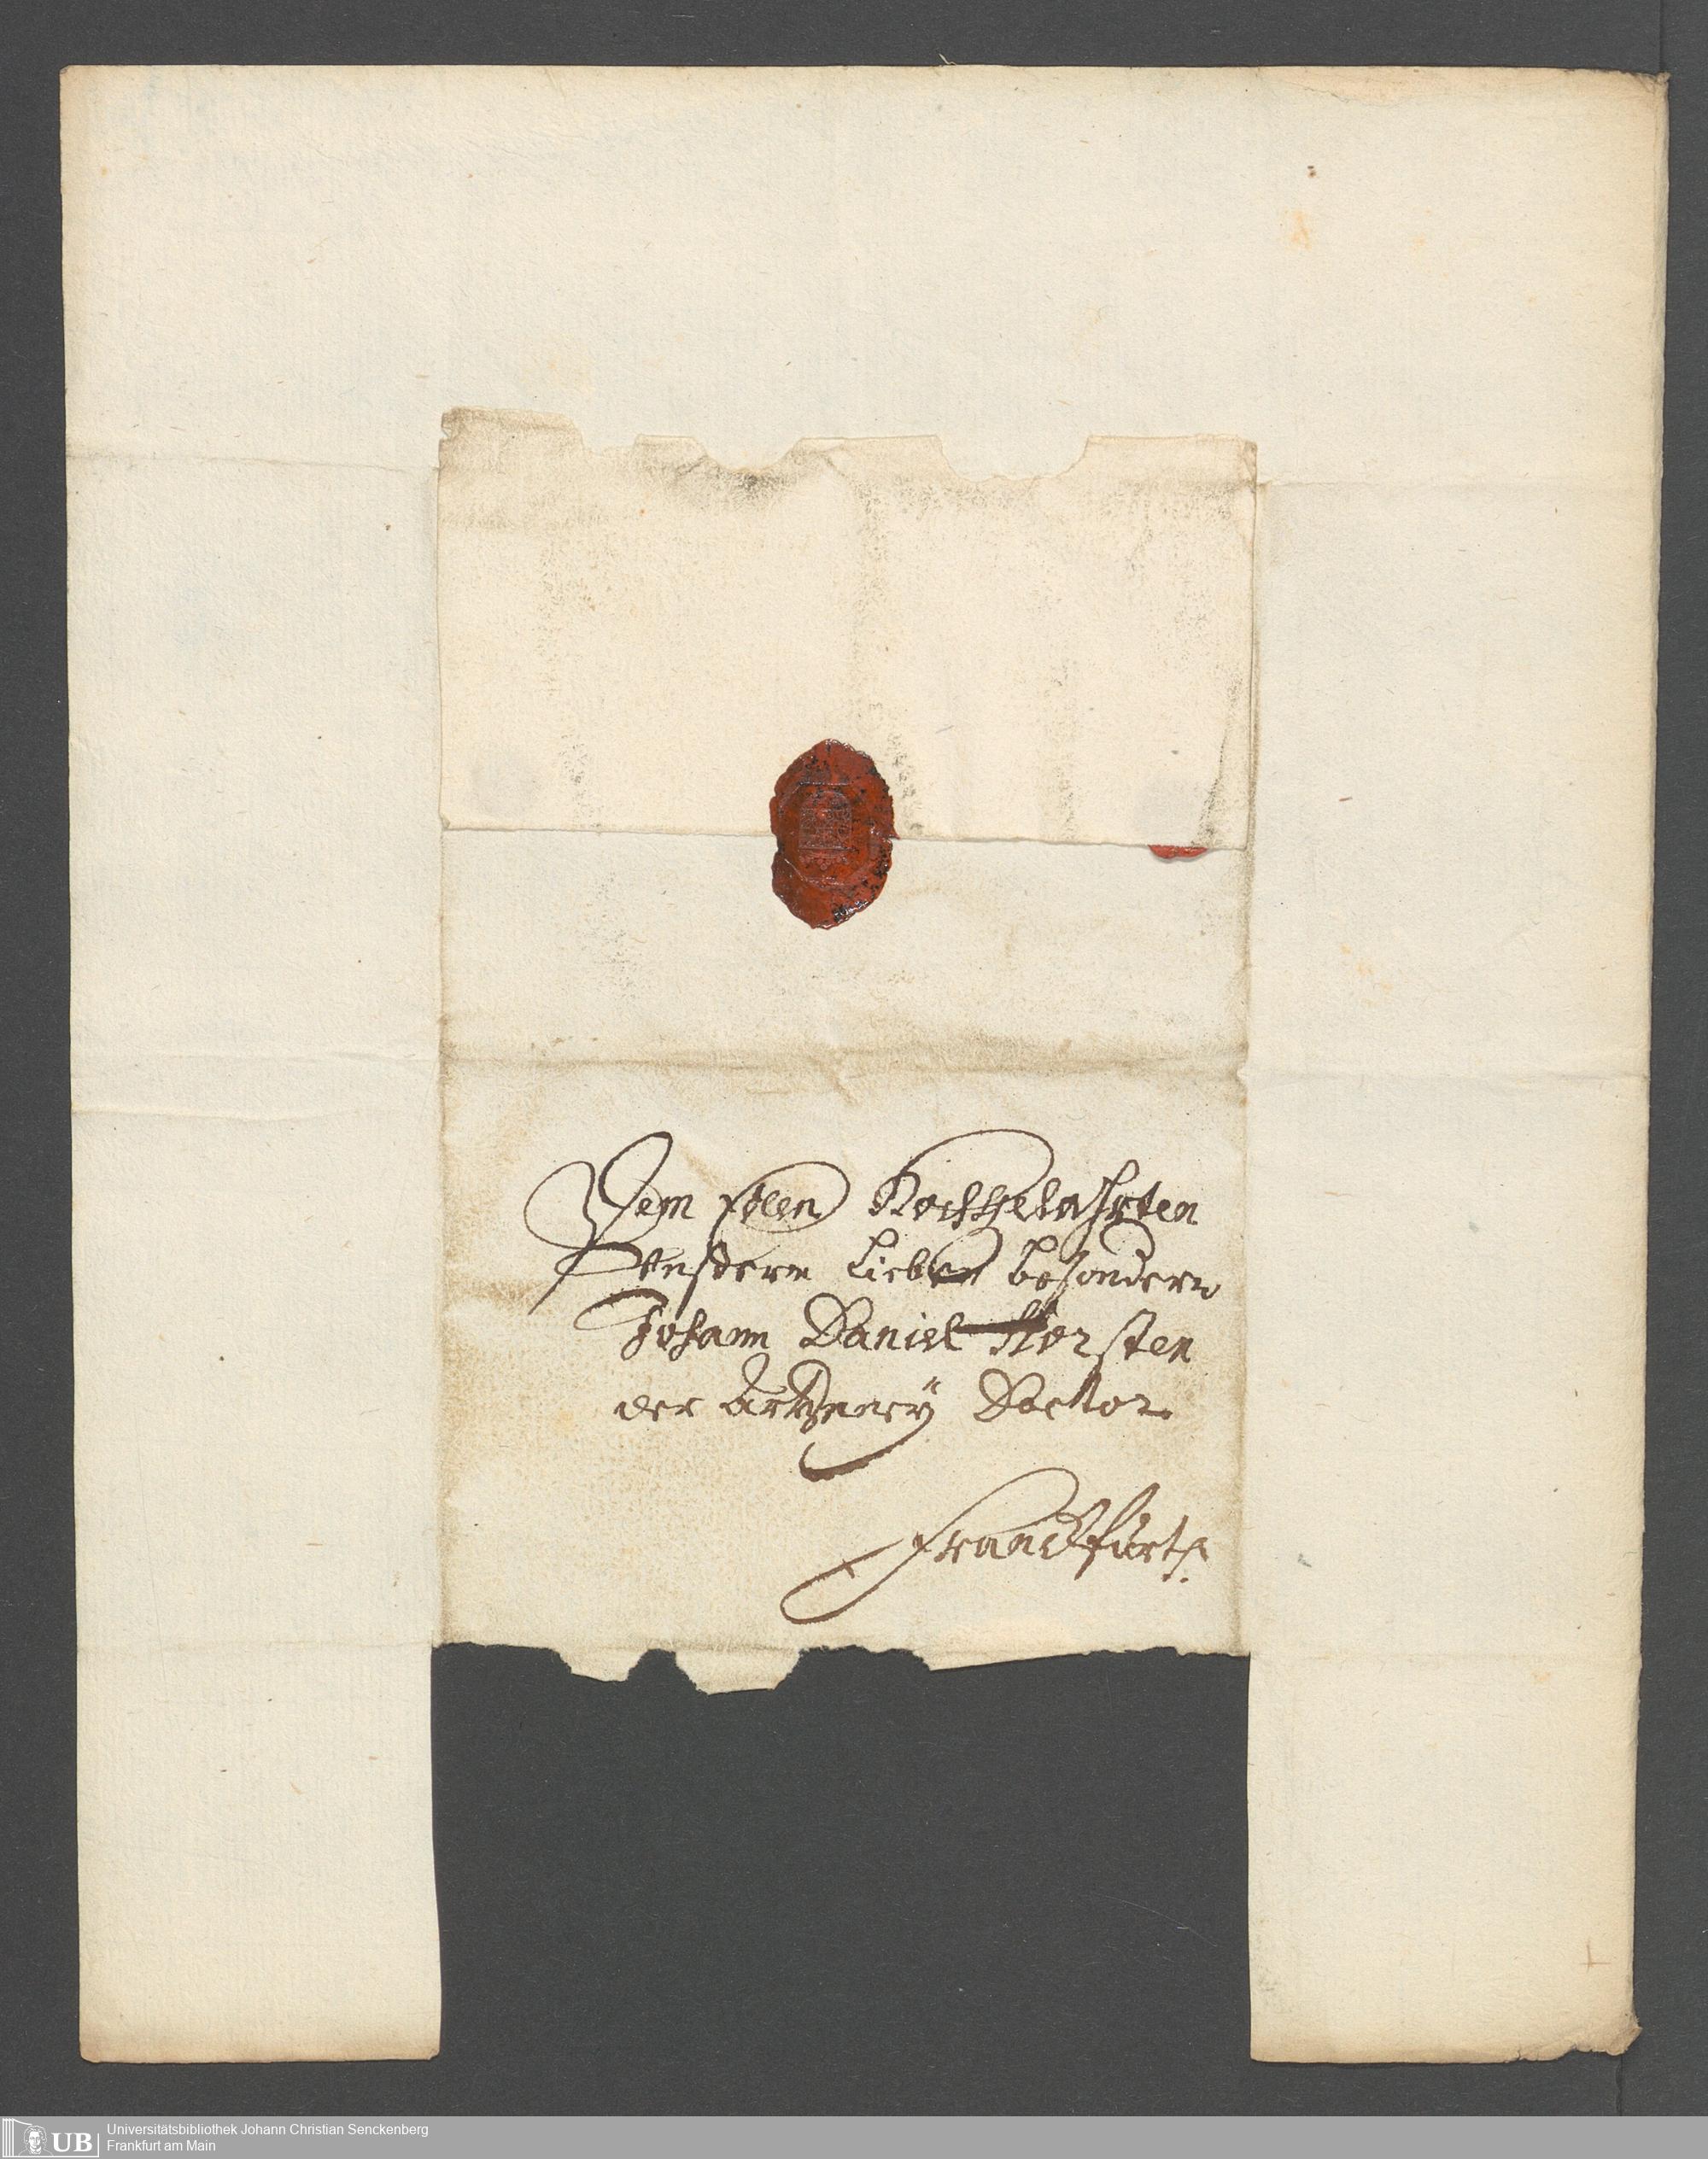 Dem Edlen Hochgelahrten
Unserm Lieben besondern
Johann Daniel Horsten
der Artzeney Doctor.
Franckfurth.
UB
Universitätsbibliothek Johann Christian Senckenberg
Frankfurt am Main